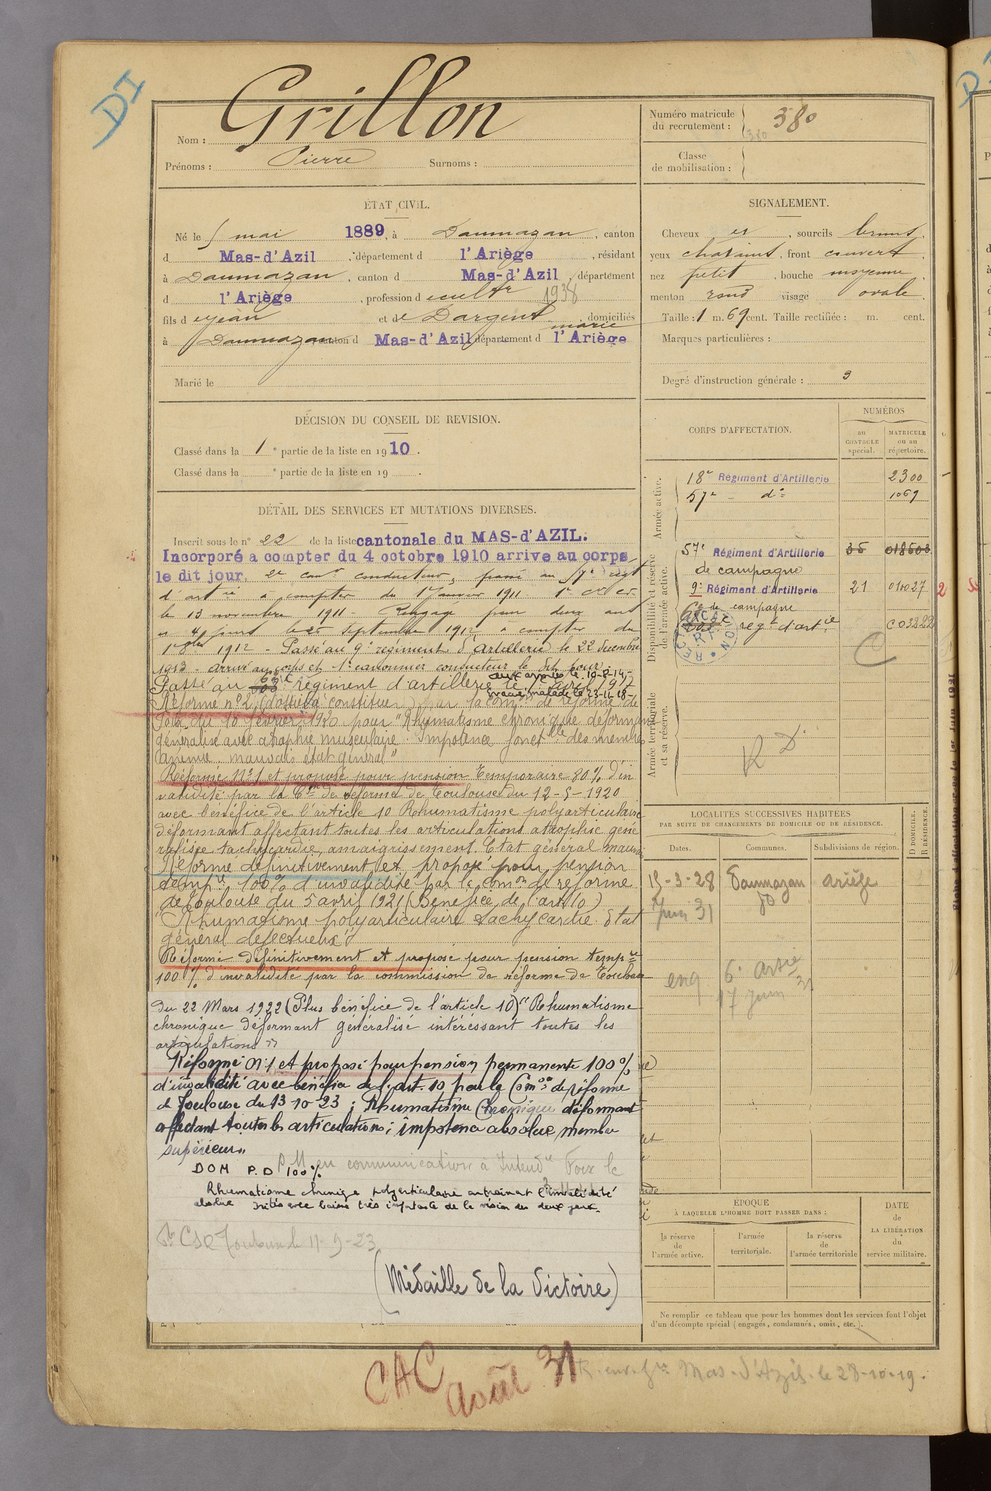 DI
Nom : Grillon
Prénoms : Pierre Surnoms :
ÉTAT CIVIL.
Né le 5 mai 1889, à Daumazan, canton
d Mas-d'Azil, département d l'Ariège, résidant
à Daumazan, canton d Mas-d'Azil, département
d l'Ariège, profession d cultr 1938
fils d Jean et de Dargent marie domiciliés
à Daumazan canton d Mas-d'Azil département d l'Ariège
Marié le
DÉCISION DU CONSEIL DE REVISION.
Classé dans la 1e partie de la liste en 1910.
Classé dans la e partie de la liste en 19 .
DÉTAIL DES SERVICES ET MUTATIONS DIVERSES.
Inscrit sous le n° 22 de la liste cantonale du MAS-d'AZIL.
Incorporé a compter du 4 octobre 1910 arrive au corps
le dit jour, 2e canr conducteur, passé au 57e régt
d'artrie à compter du 1er janvier 1911
le 13 novembre 1911 - Rengagé pour deux ans
septembre 1912 à compter du
1912 - Passé au 9e regiment d'Artillerie le 22 décembre
1913 - Arrivé au corps et 1e canonnier conducteur le dit jour
aux armées le 10-8-14
Passé au régiment d'artillerie le 1 avril 1917
évacué malade le 23-11-18
Réformé n°2 par la comon de réforme de
Foix du 18 février 1920 pour "Rhumatisme chronique déformant
généralisé avec atrophie musculaire Impotence fonctlle des membres
anémie, mauvais état général"
Réformé N°1 et proposé pour pension temporaire 80% d'in
validité par la Con de réforme de Toulouse du 12-5-1920
avec bénéfice de l'article 10 Rhumatisme polyarticulaire
déformant affectant toutes les articulations atrophie géné
ralisée tachycardie, amaigrissement. Etat général mauvais
Réformé définitivement et proposé pour pension
tempre 100% d'invalidité par la comon de réforme
de Toulouse du 5 avril 1921 (Bénéfice de l'art 10)
"Rhumatisme polyarticulaire Tachycardie Etat
général défectueux"
Réformé définitivement et proposé pour pension tempre
100% d'invalidité par la commission de réforme de Toulouse
du 22 Mars 1922 (Plus bénéfice de l'article 10) "Rhumatisme
chronique déformant généralisé intéressant toutes les
articulations"
Réformé N°1 et proposé pour pension permanente 100%
d'invalidité avec bénéfice de l'art. 10 par la Comon de réforme
de Toulouse du 13-10-23 ; Rhumatisme Chronique déformant
affectant toutes les articulations ; impotence absolue membre
supérieur"
DOM P.D 100%
P.M. en communication à Intendce Foix le
Rhumatisme chronique polyarticulaire entraînant l'invalidité
absolue très importante de la vision des deux yeux.
Toulouse le 11-9-23
(Médaille de la Victoire)
CAC
Août 31
Mas-d'Azil le 23-10-19.
Numéro matricule
du recrutement : 380
380
Classe
de mobilisation :
SIGNALEMENT.
Cheveux et, sourcils bruns,
yeux chatains, front couvert,
nez petit, bouche moyenne,
menton rond visage ovale.
Taille : 1 m. 69 cent. Taille rectifiée : m. cent.
Marques particulières :
Degré d'instruction générale : 3
CORPS D'AFFECTATION.
NUMÉROS
AU CONTROLE spécial.
MATRICULE ou au répertoire.
Armée active.
18e Régiment d'Artillerie 2300
57e do 1069
Disponibilité et réserve
de l'armée active.
57e Régiment d'Artillerie 35 018603
de campagne
9e Régiment d'Artillerie 21 01027
de campagne
regt d'artie
C
Armée territoriale
et sa réserve.
R D.
LOCALITÉS SUCCESSIVES HABITÉES
PAR SUITE DE CHANGEMENTS DE DOMICILE OU DE RÉSIDENCE.
Dates. Communes. Subdivisions de région. D DOMICILE. R RÉSIDENCE.
15-3-28 Daumazan Ariège
Juin 31 do
17 juin 31
ÉPOQUE
À LAQUELLE L'HOMME DOIT PASSER DANS :
la réserve de l'armée active.
l'armée territoriale.
la réserve de l'armée territoriale
DATE de LA LIBÉRATION du service militaire.
Ne remplir ce tableau que pour les hommes dont les services font l'objet
d'un décompte spécial (engagés, condamnés, omis, etc.).